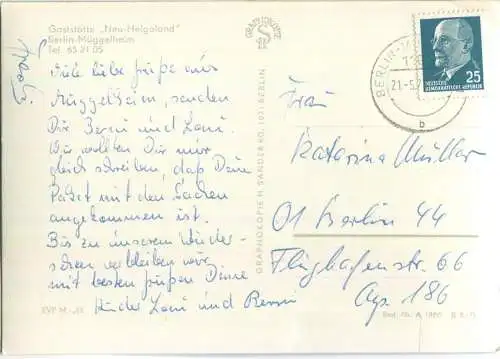 Gaststätte „Neu-Helgoland"
Berlin-Müggelheim
Tel. 65 21 05
Viele liebe Grüße aus
Müggelheim, senden
Dir Bernd und Loni.
Wir wollten Dir nur
gleich schreiben, daß Dein
Paket mit den Sachen
angekommen ist.
Bis zu unserem Wieder-
sehen verbleiben wir
mit besten Grüßen Deine
Kinder Loni und Bernd
XVF M
GRAPHOKOPIE
GRAPHOKOPIE H. SANDER KG, 1071 BERLIN
BERLIN
21.-5.7
b
25
DEUTSCHE
DEMOKRATISCHE REPUBLIK
Frau
Katarina Müller
01 Berlin 44
Flughafenstr. 66
Best.-Nr. A 1800